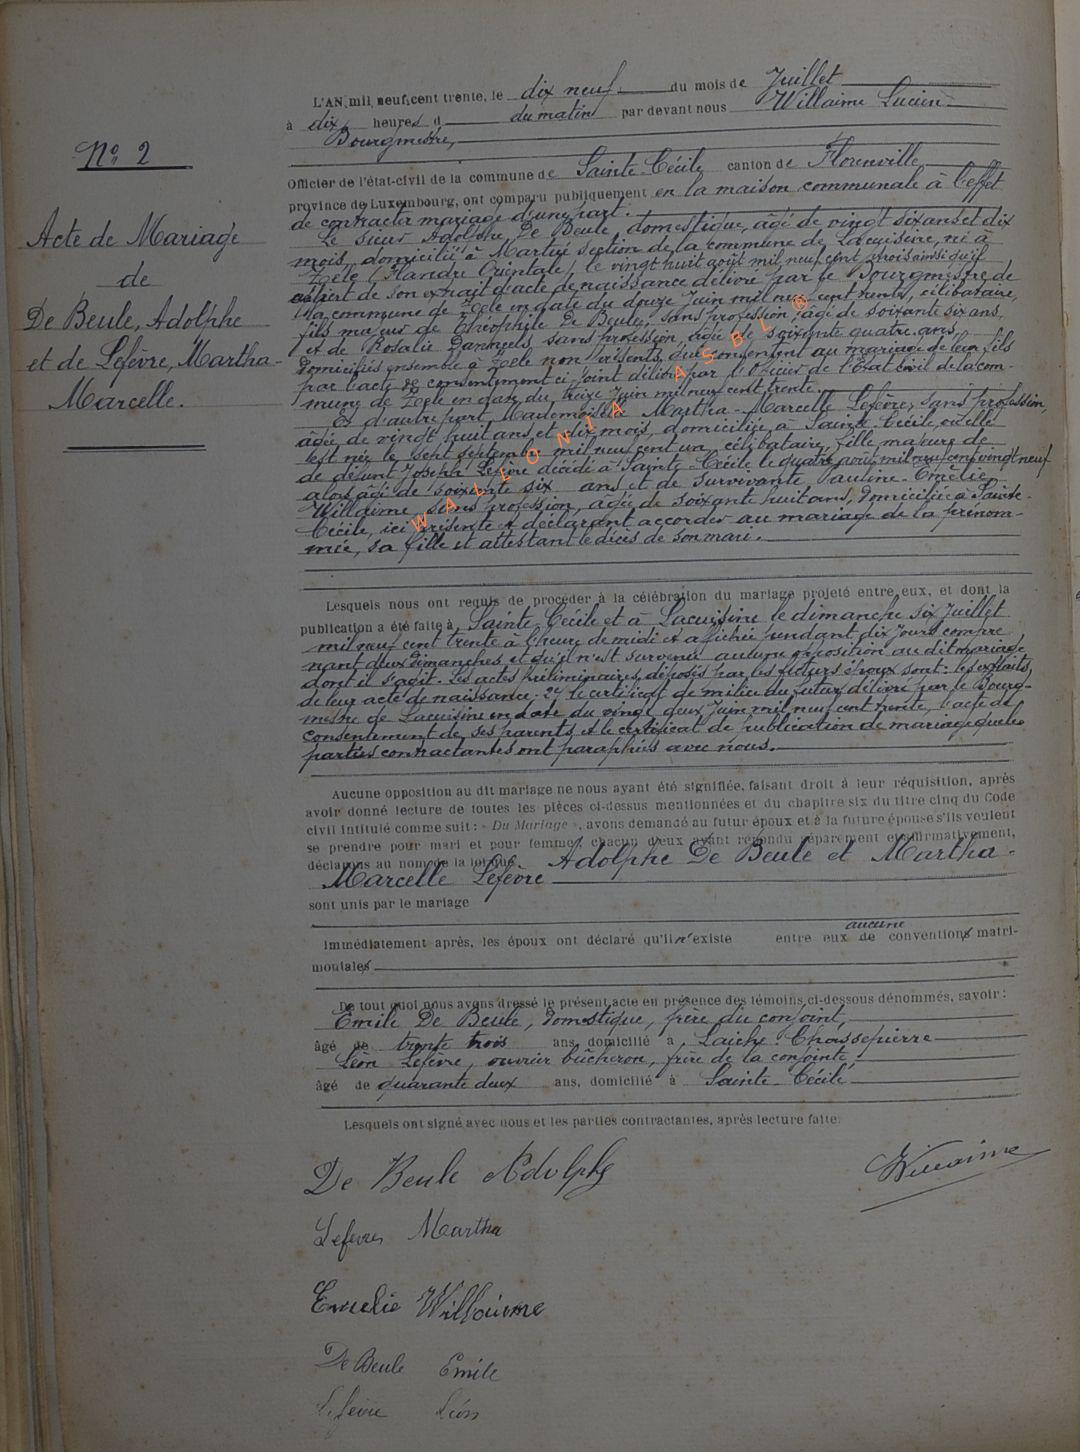 Nº 2
Acte de Mariage
de
De Beule, Adolphe
et de Lefèvre, Martha-
Marcelle.
L'AN mil neuf cent trente, le dix neuf du mois de Juillet
à dix heures d du matin par devant nous Willaime Lucien
Bourgmestre,
Officier de l'état-civil de la commune de Sainte-Cécile canton de Florenville
province de Luxembourg, ont comparu publiquement en la maison communale à l'effet
de contracter mariage d'une part.
Le sieur Adolphe De Beule, domestique, âgé de vingt six ans et dix
mois, domicilié à Martué section de la commune de Lacuisine, né à
Zele (Flandre Orientale), le vingt huit août mil neuf cent trois ainsi qu'il
conste de son extrait d'acte de naissance délivré par le Bourgmestre de
la commune de Zele en date du douze Juin mil neuf cent trente, célibataire,
fils majeur de Théophile De Beule, sans profession, âgé de soixante six ans,
et de Rosalie sans profession, âgée de soixante quatre ans,
domiciliés ensemble à Zele non présents, qui consentent au mariage de leur fils
par l'acte de consentement ci-joint délivré par l'Officier de l'Etat Civil de la com-
mune de Zele en date du treize Juin mil neuf cent trente.
Et d'autre part, Mademoiselle Martha-Marcelle Lefèvre, sans profession,
âgée de vingt huit ans et dix mois, domiciliée à Sainte-Cécile, où elle
est née le sept septembre mil neuf cent un, célibataire, fille majeure de
de défunt Joseph Lefèvre décédé à Sainte-Cécile le quatre août mil neuf cent vingt neuf
alors âgé de soixante six ans et de survivante Pauline-Emélie
Willaime, sans profession, âgée de soixante huit ans, domiciliée à Sainte-
Cécile, ici présente et déclarant accorder au mariage de la prénom-
mée, sa fille et attestant le décès de son mari.
WALLONIA ASBL®
Lesquels nous ont requis de procéder à la célébration du mariage projeté entre eux, et dont la
publication a été faite à Sainte-Cécile et à Lacuisine le dimanche six Juillet
mil neuf cent trente à l'heure de midi et affichée pendant dix jours compre
nant deux dimanches et qu'il n'est survenu aucune opposition au dit mariage
dont il s'agit. Les actes préliminaires, déposés par les futurs époux sont: les extraits,
de leur acte de naissance; 2º le certificat de milice du futur délivré par le Bourg-
mestre de Lacuisine en date du vingt deux Juin mil neuf cent trente, l'acte de
consentement de ses parents, et le certificat de publication de mariage que les
parties contractantes ont paraphés avec nous.
Aucune opposition au dit mariage ne nous ayant été signifiée, faisant droit à leur réquisition, après
avoir donné lecture de toutes les pièces ci-dessus mentionnées et du chapitre six du titre cinq du Code
civil intitulé comme suit : « Du Mariage », avons demandé au futur époux et à la future épouse s'ils veulent
se prendre pour mari et pour femme; chacun d'eux ayant répondu séparément et affirmativement,
déclarons au nom de la loi que Adolphe De Beule et Martha-
Marcelle Lefèvre
sont unis par le mariage
Immédiatement après, les époux ont déclaré qu'il n'existe entre eux aucune de conventions matri-
moniales
De tout quoi nous avons dressé le présent acte en présence des témoins ci-dessous dénommés, savoir :
Emile De Beule, domestique, frère du conjoint,
âgé de trente trois ans domicilié à Laiche-Chassepierre
Léon Lefèvre, ouvrier bûcheron, frère de la conjointe,
âgé de quarante deux ans, domicilié à Sainte-Cécile
Lesquels ont signé avec nous et les parties contractantes, après lecture faite.
De Beule Adolphe
Willaime
Lefèvre Martha
Emelie Willaime
De Beule Emile
Lefèvre Léon